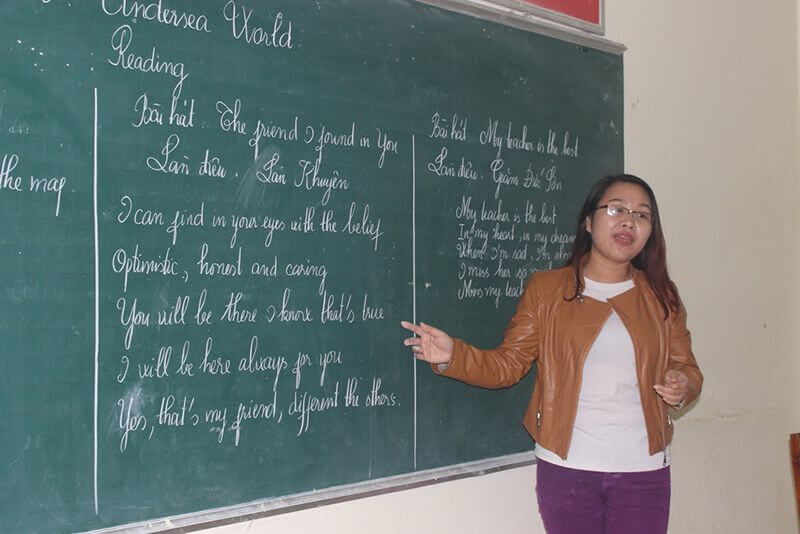 Undersea World
Reading
the map
Bài hát. The friend I found in You
Làn điệu. Lán Khuyên
I can find in your eyes with the belief
Optimistic, honest and caring
You will be there I know that's true
I will be here always for you
Yes, that's my friend, different the others.
Bài hát. My teacher is the best
Làn điệu.
My teacher is the best
In my heart, in my dream
When I'm sad, I'm
I miss her so
Miss my